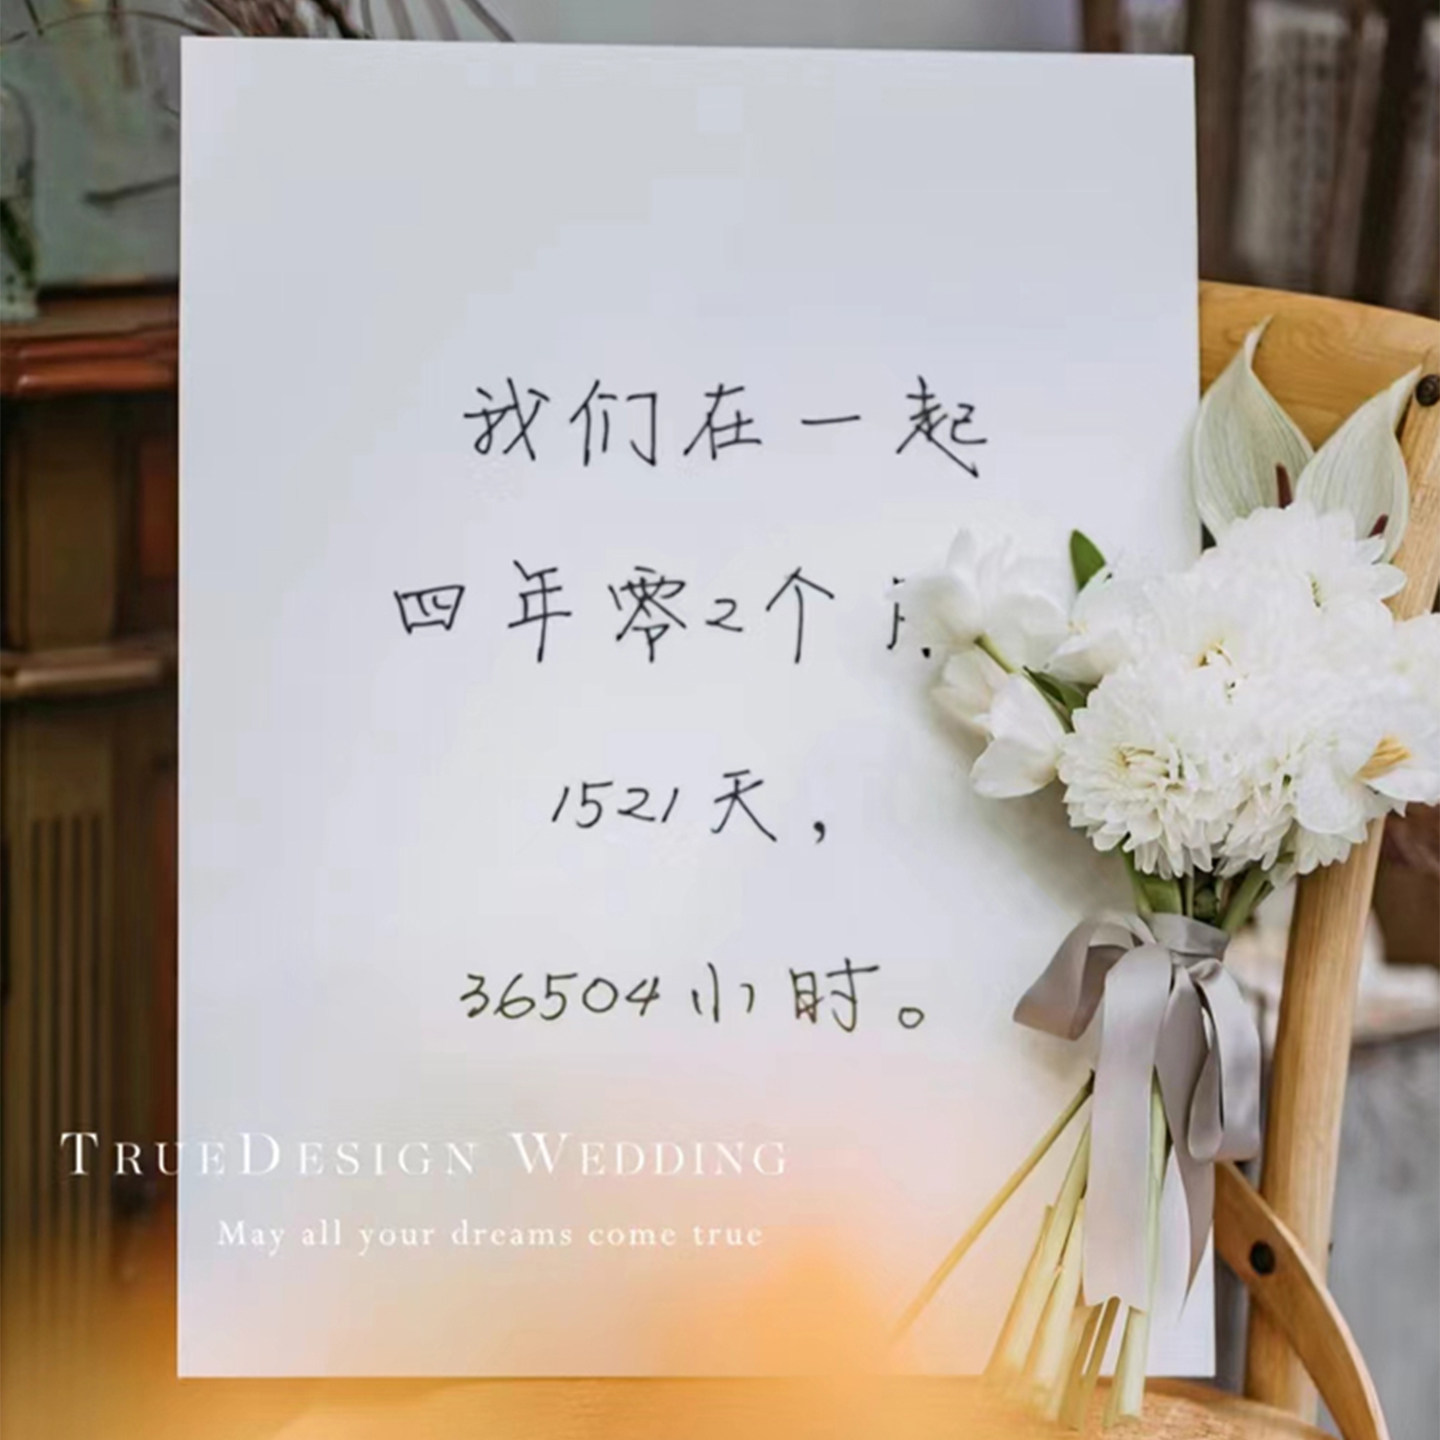 我们在一起
四年零2个
1521天，
36504小时。
TRUEDESIGN WEDDING
May all your dreams come true